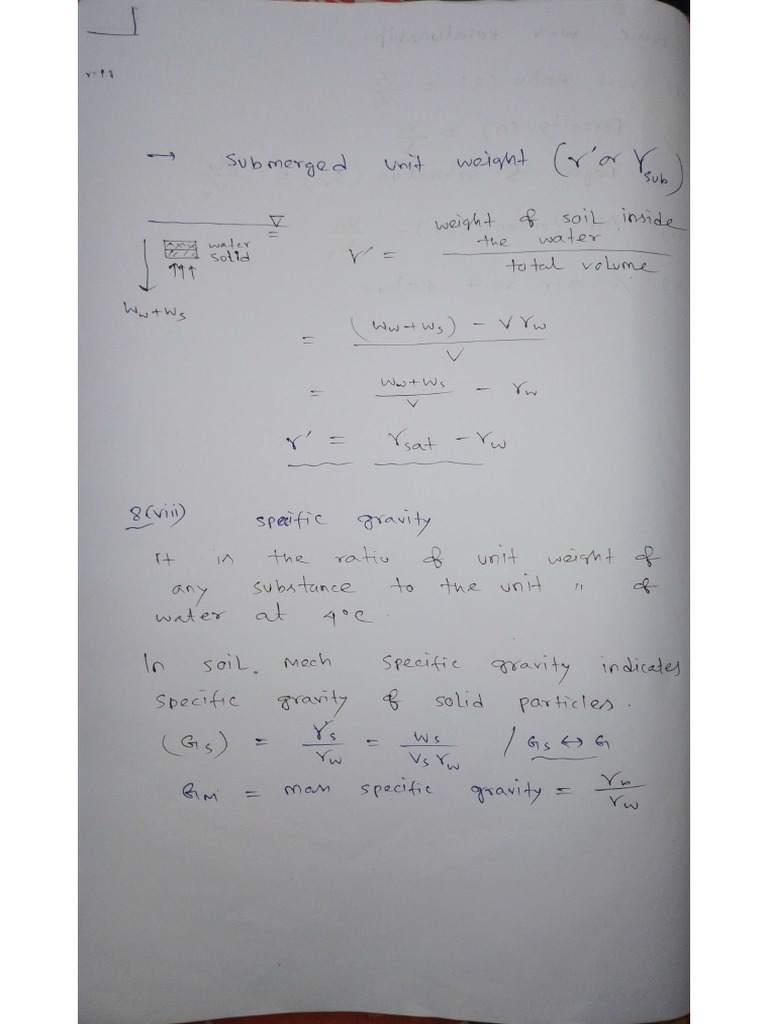 → Submerged unit weight (γ' or γsub)
water
solid
Ww+Ws
γ' = weight of soil inside the water / total volume
= (Ww+Ws) - Vγw / V
= Ww+Ws / V - γw
γ' = γsat - γw
8(viii) specific gravity
It is the ratio of unit weight of
any substance to the unit " of
water at 4°C.
In soil. Mech specific gravity indicates
specific gravity of solid particles.
(Gs) = γs / γw = Ws / Vs γw / Gs ↔ G
GM = mass specific gravity = γb / γw